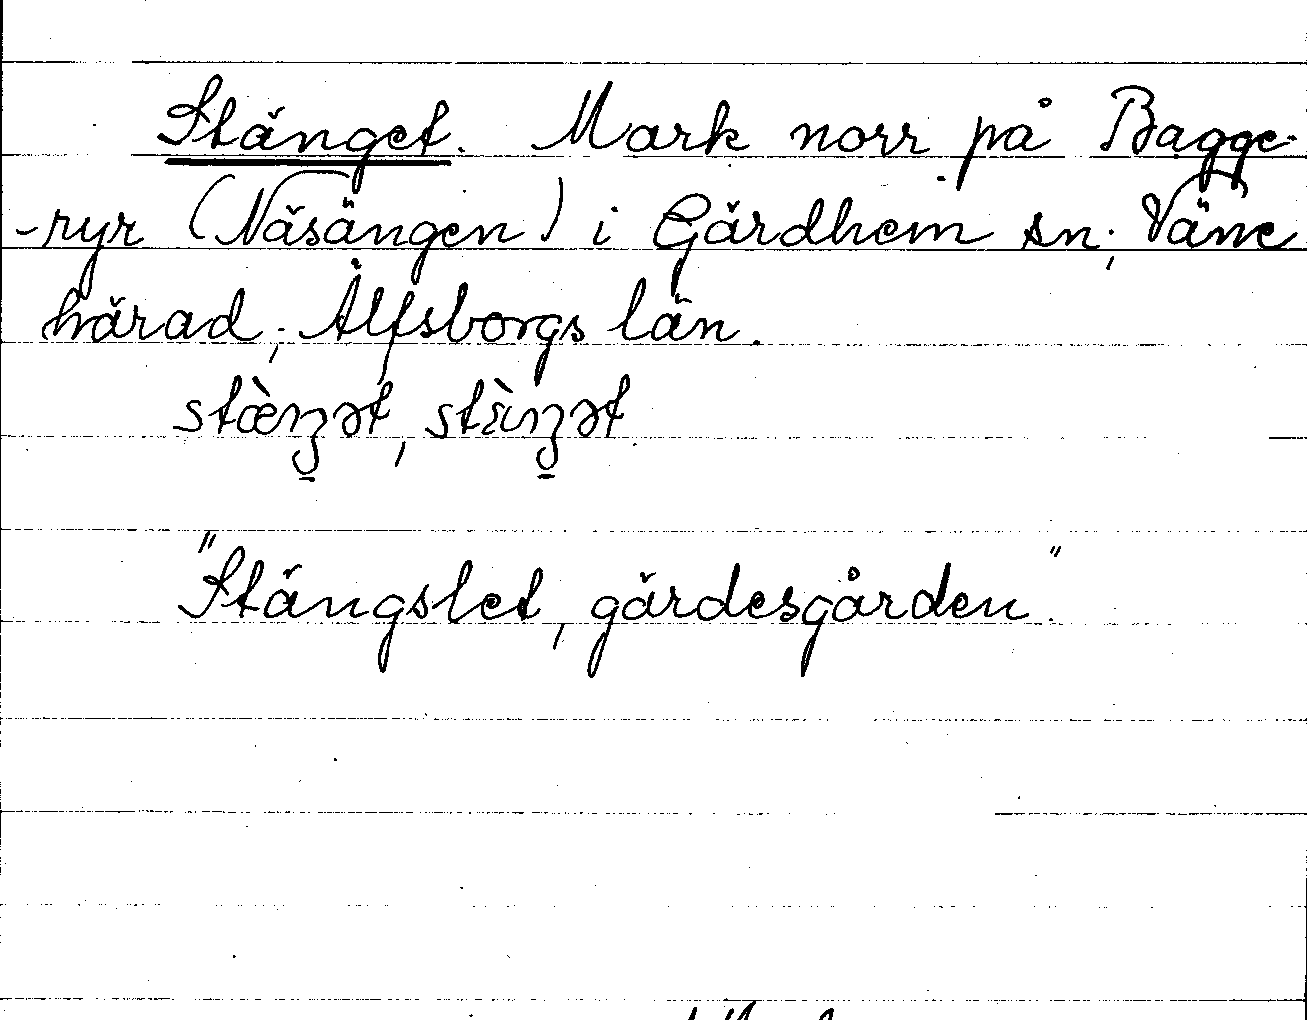 Stänget. Mark norr på Bagge-
-ryr (Näsängen) i Gärdhem sn; Väne
härad; Älfsborgs län.
stæ̀ŋət, stɛ̀ŋət
"Stängslet, gärdesgården."